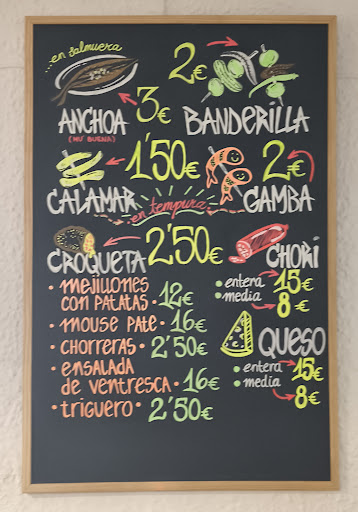 ...en salmuera
2€
3€
ANCHOA
(MU BUENA)
BANDERILLA
1'50€
2€
CALAMAR
en tempura
GAMBA
2'50€
CROQUETA
CHORI
• entera 15€
• media 8€
• mejillones
con patatas • 12€
• mouse pate • 16€
• chorreras • 2'50€
• ensalada
de ventresca • 16€
• triguero • 2'50€
QUESO
• entera 15€
• media 8€